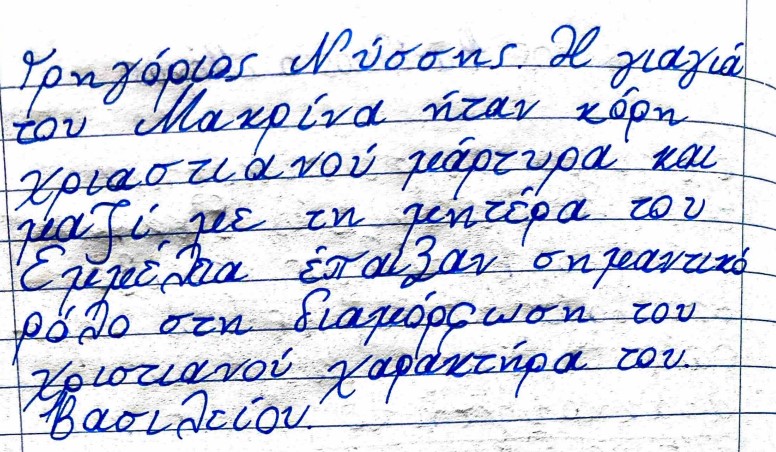 Γρηγόριος Νύσσης. Η γιαγιά
του Μακρίνα ήταν κόρη
χριαστιανού μάρτυρα και
μαζί με τη μητέρα του
Εμμέλεια έπαιξαν σημαντικό
ρόλο στη διαμόρφωση του
χριστιανού χαρακτήρα του.
Βασιλείου.